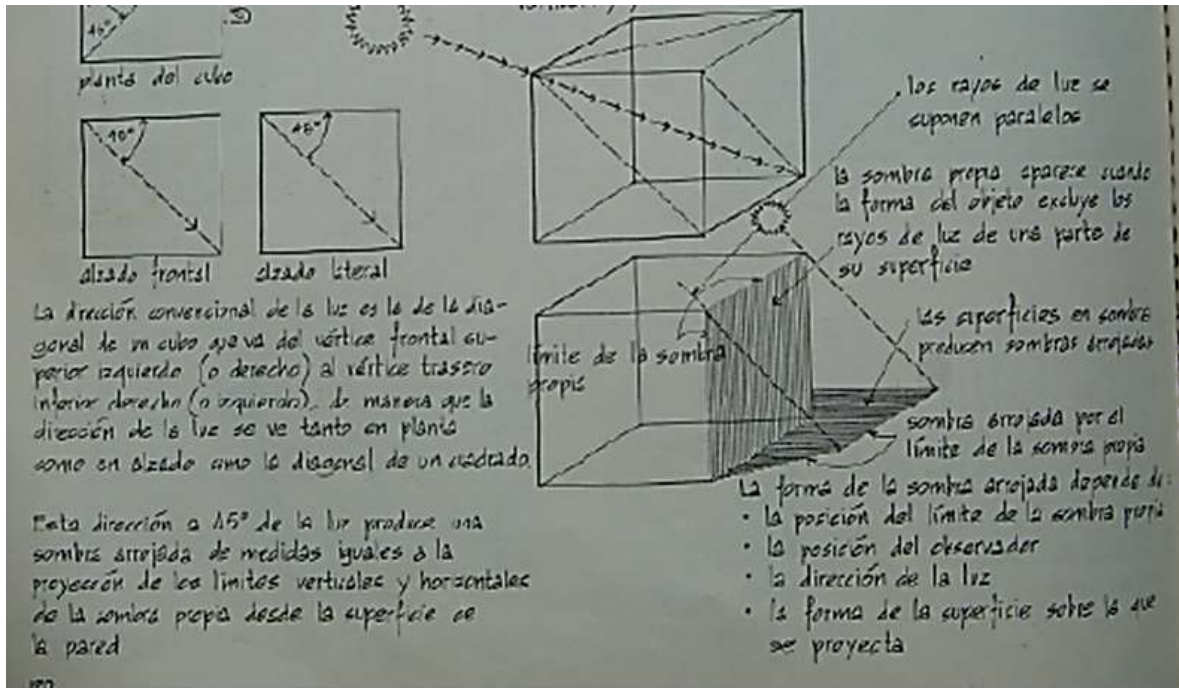 45°
planta del cubo
45°
45°
alzado frontal
alzado lateral
La dirección convencional de la luz es la de la dia-
gonal de un cubo que va del vértice frontal su-
perior izquierdo (o derecho) al vértice trasero
inferior derecho (o izquierdo), de manera que la
dirección de la luz se ve tanto en planta
como en alzado como la diagonal de un cuadrado.
Esta dirección a 45° de la luz produce una
sombra arrojada de medidas iguales a la
proyección de los límites verticales y horizontales
de la sombra propia desde la superficie de
la pared
los rayos de luz se
suponen paralelos
la sombra propia aparece cuando
la forma del objeto excluye los
rayos de luz de una parte de
su superficie
límite de la sombra
propia
las superficies en sombra
producen sombras arrojadas
sombra arrojada por el
límite de la sombra propia
La forma de la sombra arrojada depende de:
• la posición del límite de la sombra propia
• la posición del observador
• la dirección de la luz
• la forma de la superficie sobre la que
se proyecta